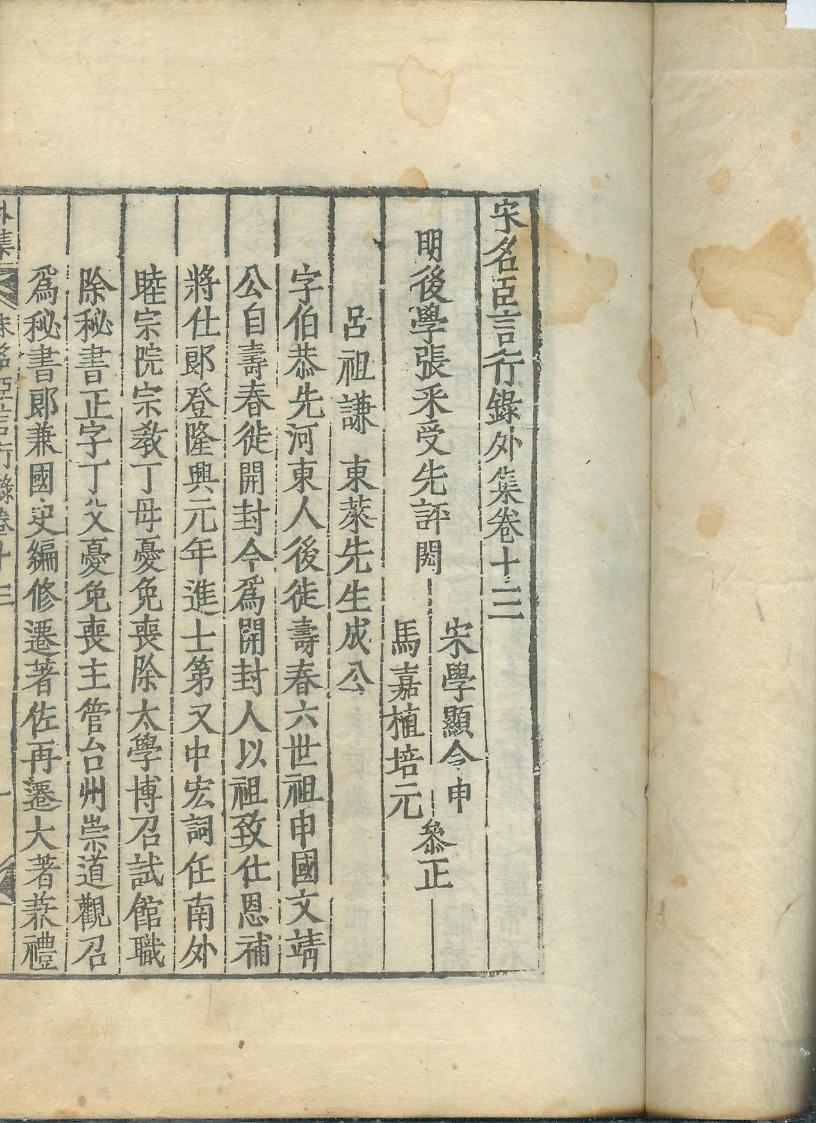 宋名臣言行錄外集卷十三
明後學張采受先評閱
宋學顯令申
馬嘉植培元
叅正
呂祖謙 東萊先生成公
字伯恭先河東人後徙壽春六世祖申國文靖
公自壽春徙開封今爲開封人以祖致仕恩補
將仕郎登隆興元年進士第又中宏詞任南外
睦宗院宗教丁母憂免喪除太學博召試館職
除秘書正字丁父憂免喪主管台州崇道觀召
爲秘書郎兼國史編修遷著佐再遷大著兼禮
外集
宋名臣言行錄卷十三
一